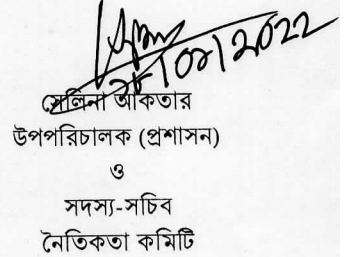 সেলিনা আকতার
উপপরিচালক (প্রশাসন)
ও
সদস্য-সচিব
নৈতিকতা কমিটি